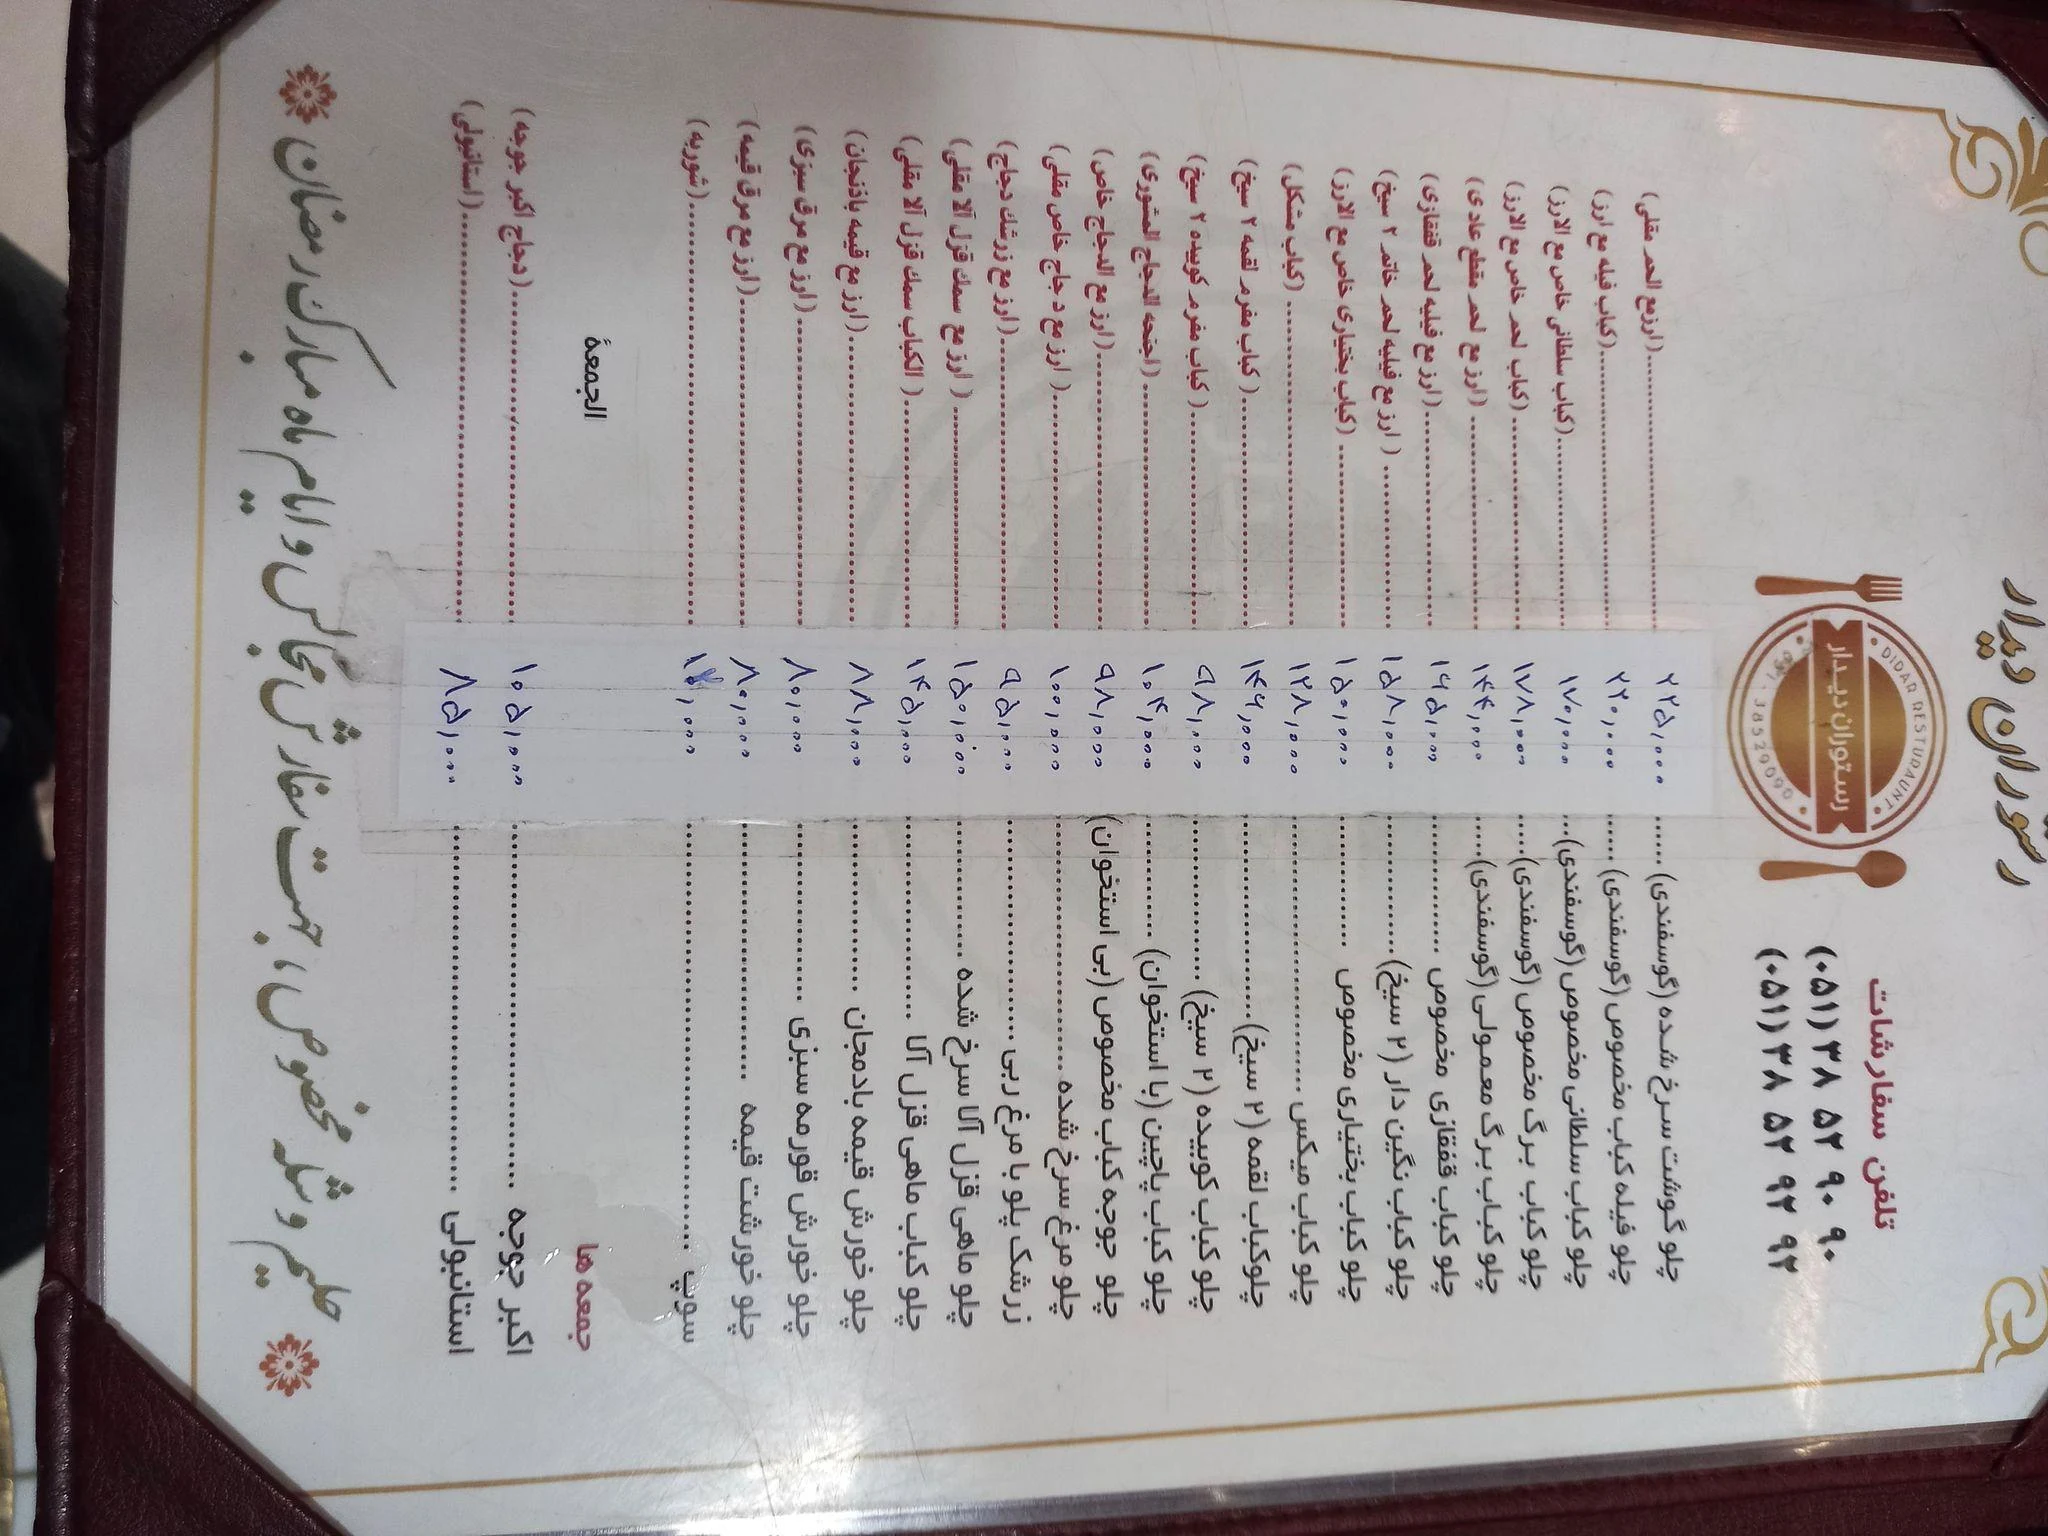 رستوران دیدار
DIDAR RESTURAUNT
رستوران دیدار
051 - 38529090
تلفن سفارشات
(۰۵۱) ۳۸ ۵۲ ۹۰ ۹۰
(۰۵۱) ۳۸ ۵۲ ۹۲ ۹۲
چلو گوشت سرخ شده (گوسفندی)...... ۲۲۵,۰۰۰ ......(ارز مع الحمر مقلی)
چلو فیله کباب مخصوص (گوسفندی)...... ۲۲۰,۰۰۰ ......(کباب فیله مع ارز)
چلو کباب سلطانی مخصوص (گوسفندی)... ۱۷۰,۰۰۰ ......(کباب سلطانی خاص مع الارز)
چلو کباب برگ مخصوص (گوسفندی)..... ۱۷۸,۰۰۰ ......(کباب لحمر خاص مع الارز)
چلو کباب برگ معمولی (گوسفندی)..... ۱۴۴,۰۰۰ ......(ارز مع لحمر مقطع عادی)
چلو کباب قفقازی مخصوص ...... ۱۶۵,۰۰۰ ......(ارز مع فیلیه لحمر قفقازی)
چلو کباب نگین دار (۲ سیخ)...... ۱۵۸,۰۰۰ ......(ارز مع فیلیه لحمر خاتمر ۲ سیخ)
چلو کباب بختیاری مخصوص ...... ۱۵۰,۰۰۰ ......(کباب بختیاری خاص مع الارز)
چلو کباب میکس ...... ۱۲۸,۰۰۰ ......(کباب مشکل)
چلوکباب لقمه (۲ سیخ)...... ۱۴۶,۰۰۰ ......(کباب مفرمر لقمه ۲ سیخ)
چلو کباب کوبیده (۲ سیخ)...... ۹۸,۰۰۰ ......(کباب مفرمر کوبیده ۲ سیخ)
چلو کباب پاچین (با استخوان)...... ۱۰۴,۰۰۰ ......(اجنحه الدجاج المشوری)
چلو جوجه کباب مخصوص (بی استخوان) ۹۸,۰۰۰ ......(ارز مع الدجاج خاص)
چلو مرغ سرخ شده ...... ۱۰۰,۰۰۰ ......(ارز مع دجاج خاص مقلی)
زرشک پلو با مرغ ربی ...... ۹۵,۰۰۰ ......(ارز مع زرشك دجاج)
چلو ماهی قزل آلا سرخ شده ...... ۱۵۰,۰۰۰ ......(ارز مع سمك قزل آلا مقلی)
چلو کباب ماهی قزل آلا ...... ۱۴۵,۰۰۰ ......(الکباب سمك قزل آلا مقلی)
چلو خورش قیمه بادمجان ...... ۸۸,۰۰۰ ......(ارز مع قیمه باذنجان)
چلو خورش قورمه سبزی ...... ۸۰,۰۰۰ ......(ارز مع مرق سبزی)
چلو خورشت قیمه ...... ۸۰,۰۰۰ ......(ارز مع مرق قیمه)
سوپ ...... ......(شوربه)
جمعه ها الجمعة
اکبر جوجه ...... ۱۰۵,۰۰۰ ......(دجاج اکبر جوجه)
استانبولی ...... ۸۵,۰۰۰ ......(استانبولی)
حلیم و شله مخصوص، جهت سفارش مجالس و ایام ماه مبارک رمضان